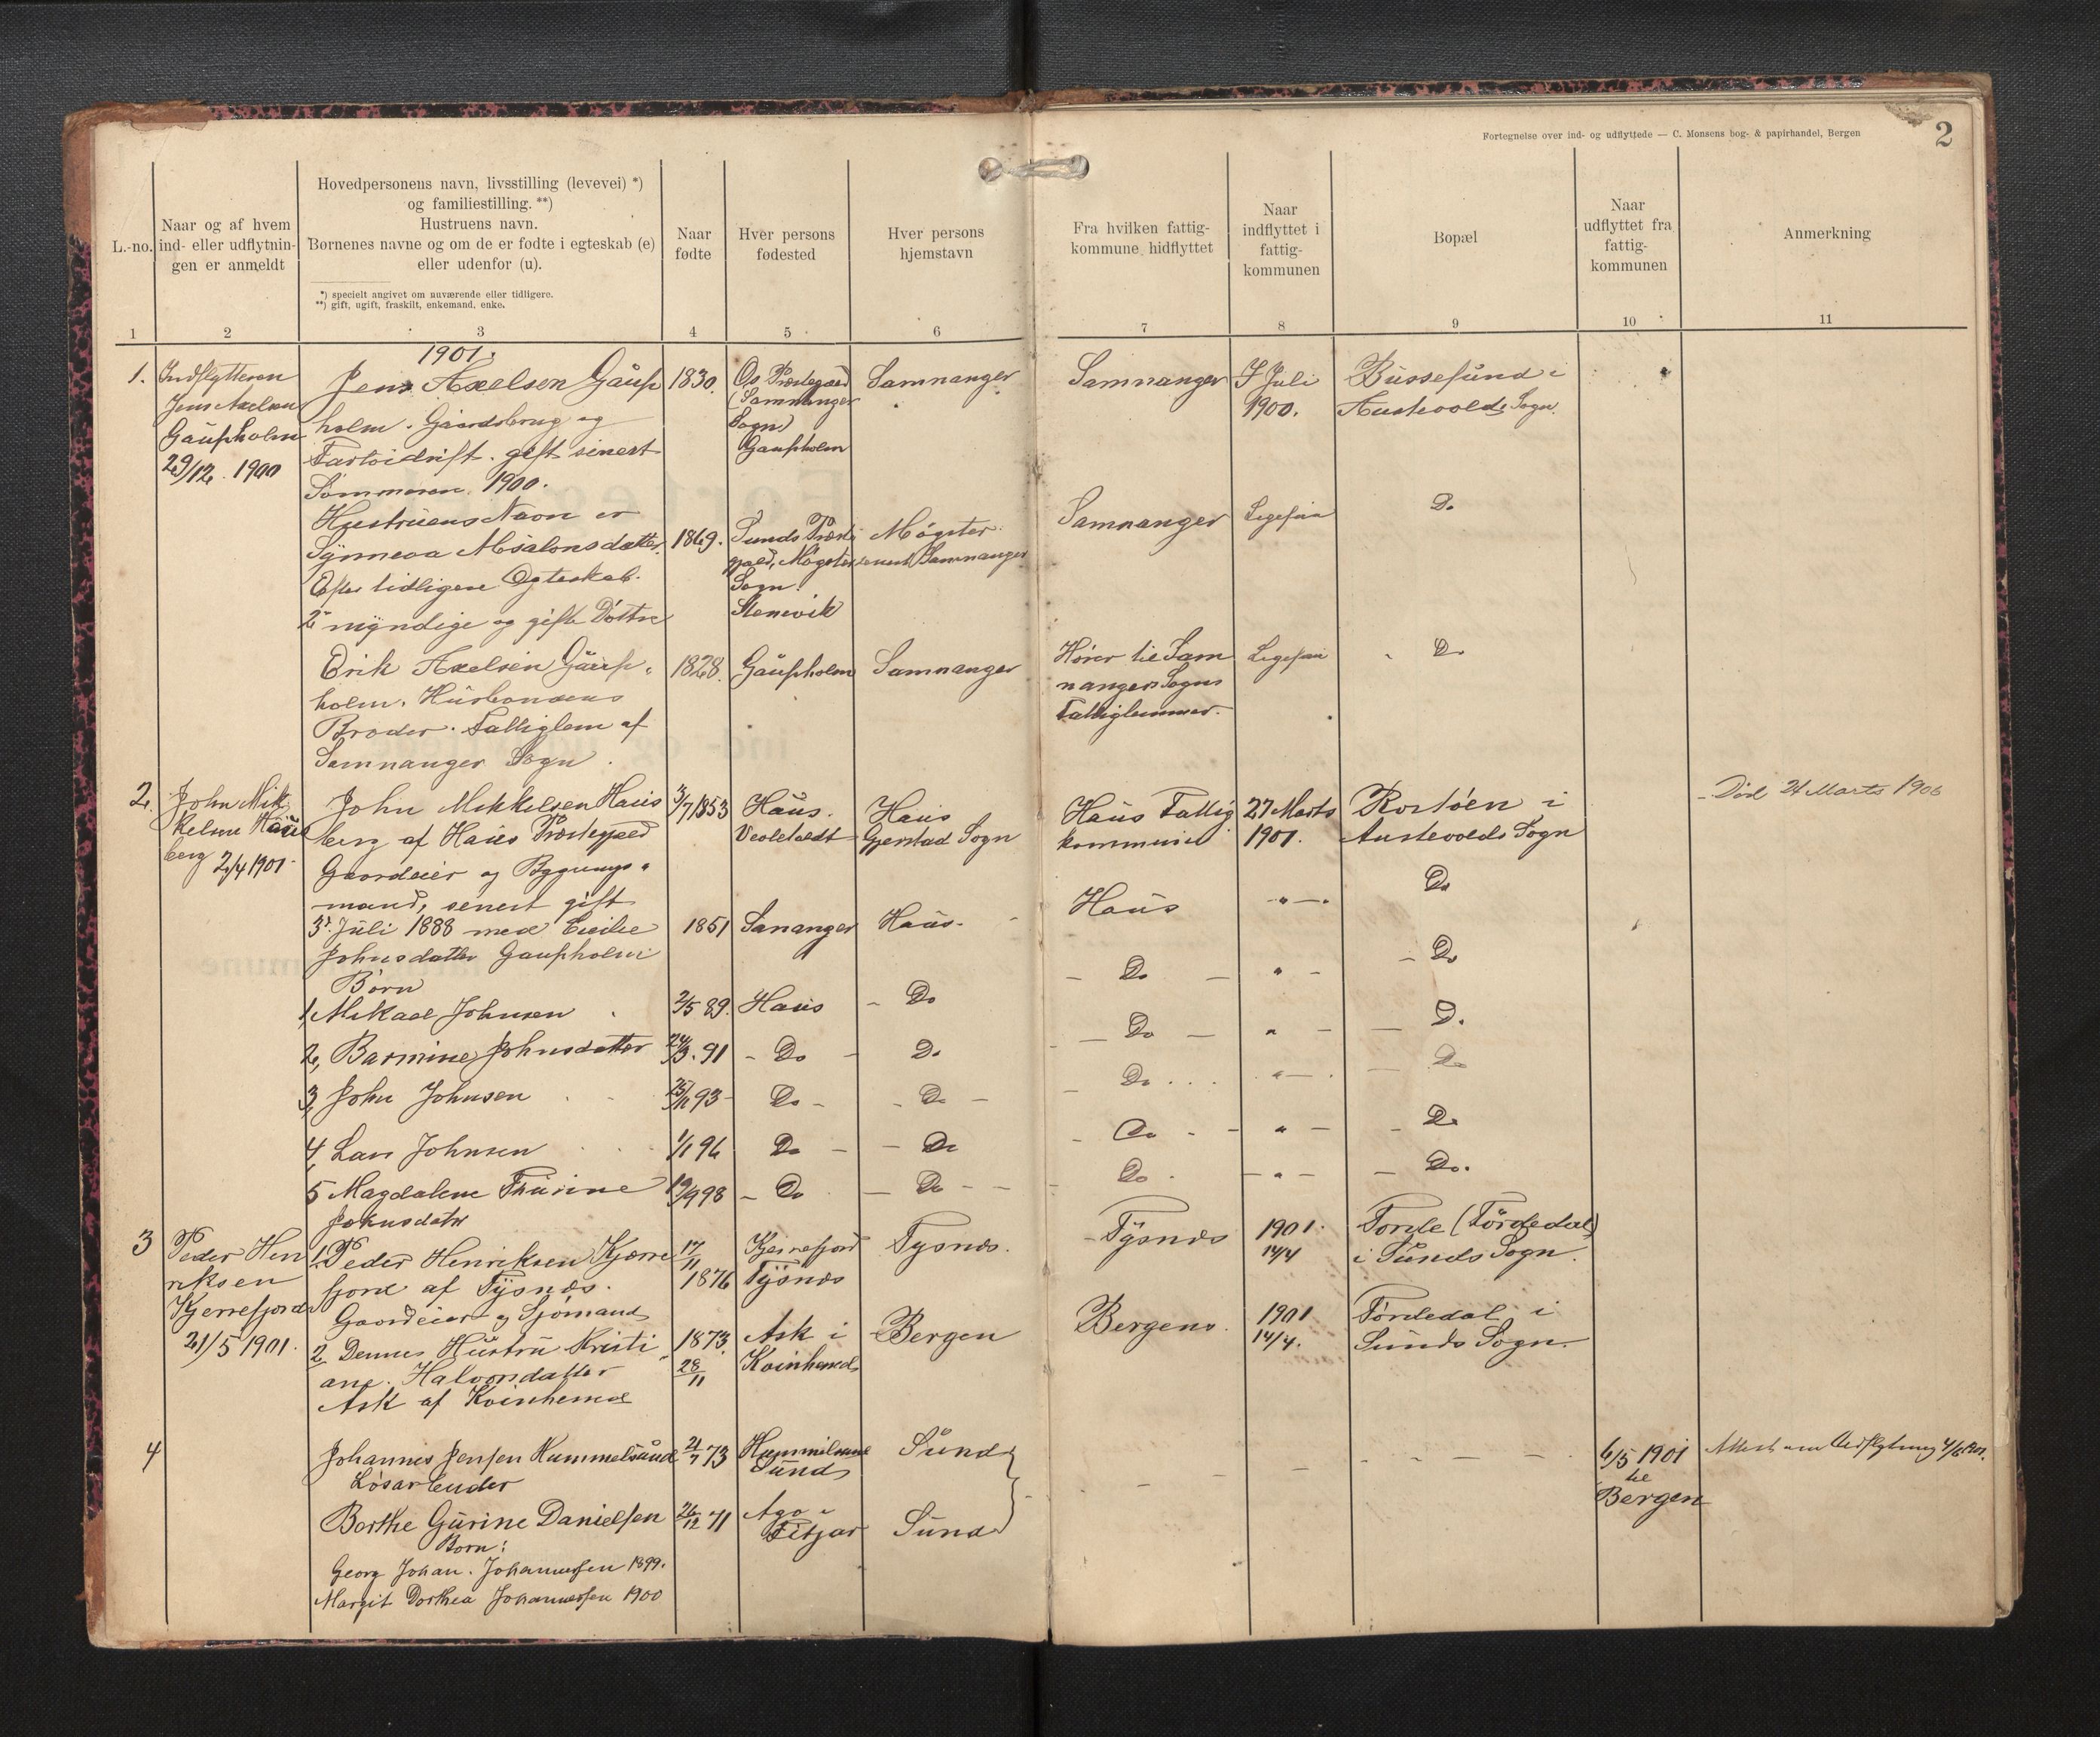 Fortegnelse over ind- og udflyttede — C. Monsens bog- & papirhandel, Bergen
2
L.-no.
Naar og af hvem
ind- eller udflytnin-
gen er anmeldt
Hovedpersonens navn, livsstilling (levevei) *)
og familiestilling. **)
Hustruens navn.
Børnenes navne og om de er fødte i egteskab (e)
eller udenfor (u).
*) specielt angivet om nuværende eller tidligere.
**) gift, ugift, fraskilt, enkemand, enke.
Naar
fødte
Hver persons
fødested
Hver persons
hjemstavn
Fra hvilken fattig-
kommune hidflyttet
Naar
indflyttet i
fattig-
kommunen
Bopæl
Naar
udflyttet fra
fattig-
kommunen
Anmerkning
1 2 3 4 5 6 7 8 9 10 11
1901.
1.
Indflytteren
Jens Axelsen
Gaupholm
29/12 1900
Jens Axelsen Gaup
holm. Gaardsbrug og
Fartøidrift. gift senest
Sommeren 1900.
1830.
Os Præstegjæld
(Samnanger
Sogn)
Gaupholm
Samnanger
Samnanger
Juli
1900.
Bussesund i
Austevolds Sogn.
Hustruens Navn er
Synneva Absalonsdatter
Efter tidligere Egteskab.
2 myndige og gifte Døttre
1869.
Sunds Præste
gjæld, Møgster
Sogn.
Stenevik
Møgster
senest Samnanger
Samnanger
Ligesaa
Do
Erik Axelsen Gaup-
holm. Husbondens
Broder. Fattiglem af
Samnanger Sogn.
1828.
Gaupholm
Samnanger
Hører til Sam
nanger Sogns
Fattiglemmer.
Ligesaa
Do
2.
John Mik
kelsen Haus
berg 2/4 1901
John Mikkelsen Haus
berg af Haus Præstegjæld
Gaardeier og Bygnings-
mand, senest gift
3/7 1853
Haus.
Haus
Gjerstad Sogn
Haus Fattig
kommune
27 Marts
1901.
Rostøen i
Austevolds Sogn
Død 24 Marts 1906
3die Juli 1888 med Cecilie
Johnsdatter Gaupholm
1851
Sananger
Haus.
Haus
Do
Børn
1, Mikael Johnsen
2/5 89.
Haus
Do
Do
Do
2, Barmine Johnsdatter
24/3. 91
Do
Do
Do
Do
3, John Johnsen
25/11 93
Do
Do
Do
Do
4 Lars Johnsen
1/1 96
Do
Do
Do
Do
5 Magdalene Thurine
Johnsdatr
19/9 98
Do
Do
Do
Do.
3
Peder Hen
riksen
Kjerrefjord
21/5 1901.
1. Peder Henriksen Kjerre
fjord af Tysnæs.
Gaardeier og Sjømand
17/11
1876
Kjerrefjord
Tysnæs
Tysnæs.
Tysnæs
1901.
14/4
Forde (Førdedal)
i Sunds Sogn.
2 Dennes Hustru Kristi
ane. Halvorsdatter
Ask af Kvinherred
1873.
28/11
Ask i
Kvinhered
Bergen
Bergens.
1901
14/4.
Førdedal i
Sunds Sogn.
4
Johannes Jensen Hummelsund
Løsarbeider
21/7 73
Hummelsund
Sund
Sund
6/5 1901
til
Bergen
Attest om Udflytning 4/6 1901.
Berthe Gurine Danielsen
26/12 71
Aga
Fitjar
Sund
Børn:
Georg Johan. Johannessen 1899.
Margit Dorthea Johannessen 1900